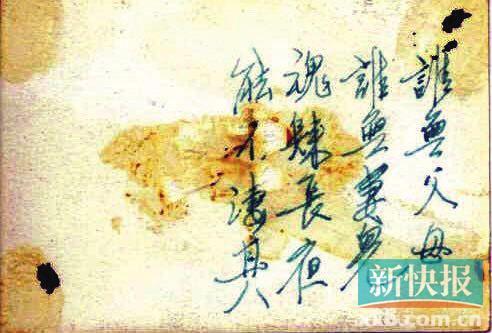 誰無父母
誰無妻兒
魂長夜
能不淒其
新快报
xkb.com.cn